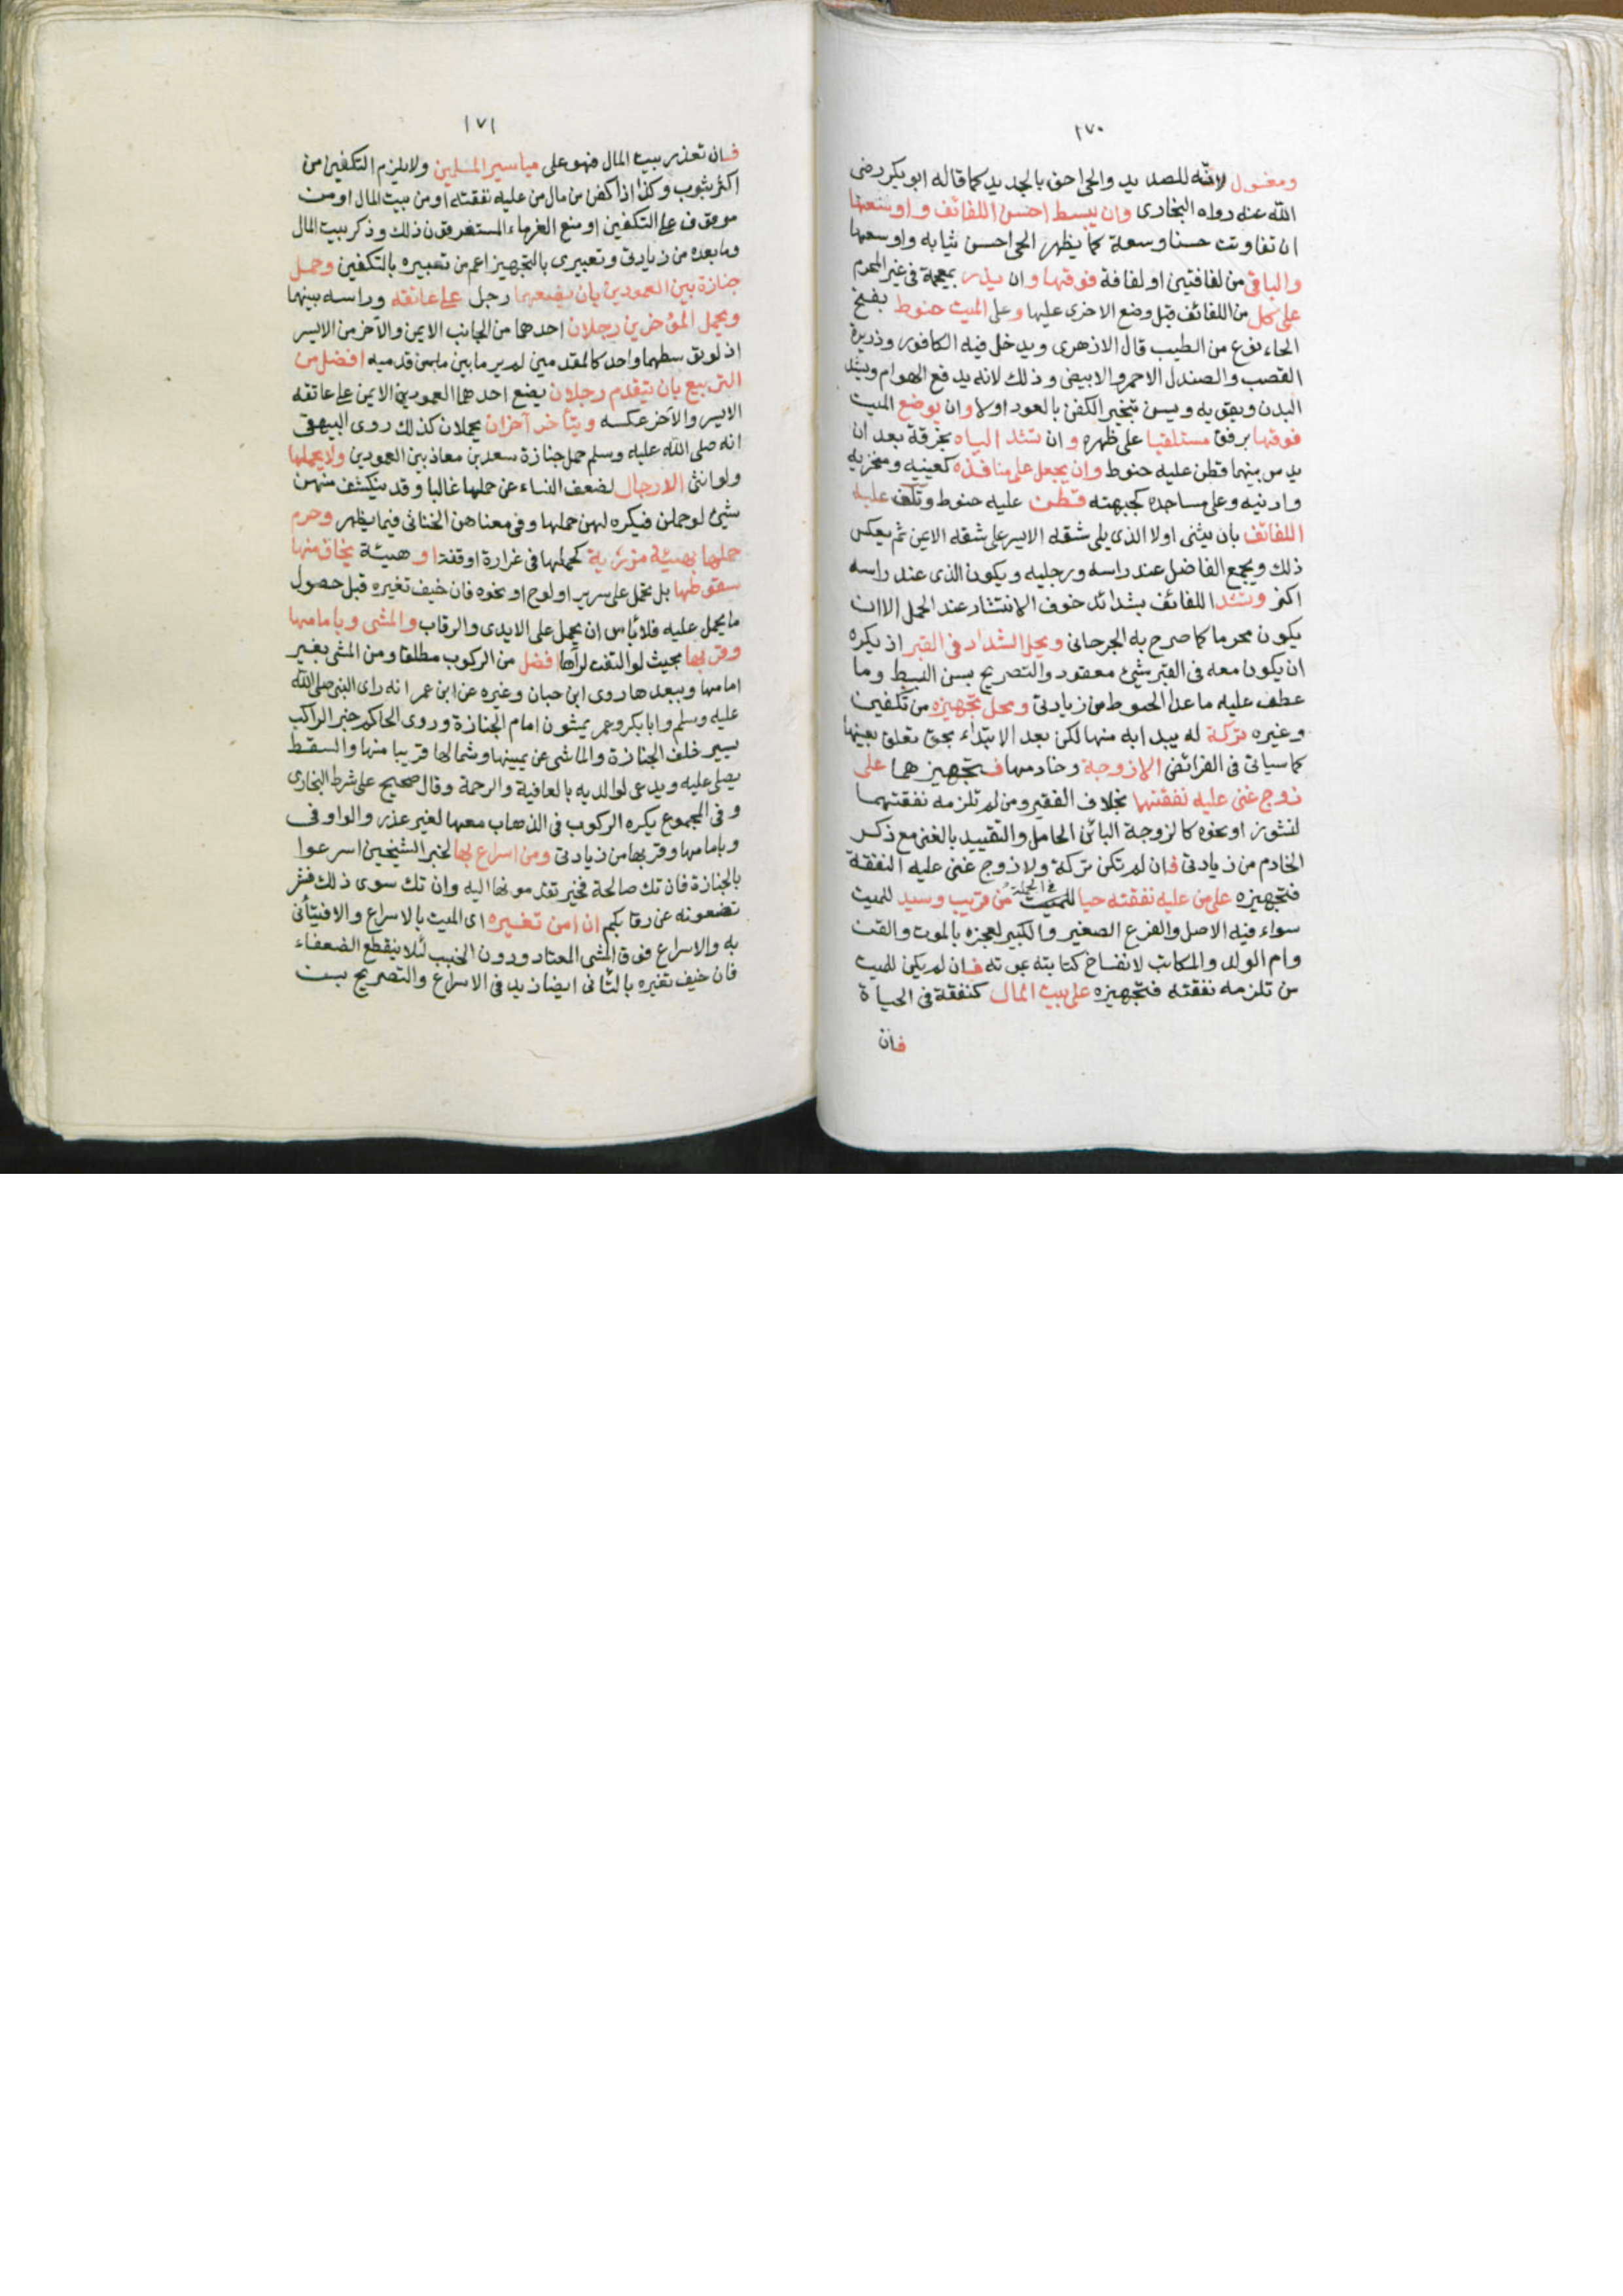 ١٧٠
ومغسول لانه للصديد والحي احق بالجديد كما قاله ابو بكر رضى
الله عنه رواه البخارى وان يبسط احسن اللفائف واوسعها
ان تفاوتت حسنا وسعة كما يظهر الحي احسن ثيابه واوسعها
والباقى من لفافتين او لفافة فوقها وان يذر بمعجمة فى غير المحرم
على كل من اللفائف قبل وضع الاخرى عليها وعلى الميت حنوط بفتح
الحاء نوع من الطيب قال الازهرى ويدخل فيه الكافور وذريرة
القصب والصندل الاحمر والابيض وذلك لانه يدفع الهوام ويشد
البدن ويقويه ويسن تبخير الكفن بالعود اولا وان يوضع الميت
فوقها برفق مستلقيا على ظهره وان تشد الياه بخرقة بعد ان
يدس بينهما قطن عليه حنوط وان يجعل على منافذه كعينيه ومنخريه
واذنيه وعلى مساجده كجبهته قطن عليه حنوط وتلف عليه
اللفائف بان يثنى اولا الذى يلى شقه الايسر على شقه الايمن ثم يعكس
ذلك ويجمع الفاضل عند راسه ورجليه ويكون الذى عند راسه
اكثر وتشد اللفائف بشداد خوف الانتشار عند الحمل الا ان
يكون محرما كما صرح به الجرجانى ويحل الشداد فى القبر اذ يكره
ان يكون معه فى القبر شئ معقود والتصريح بسن البسط وما
عطف عليه ما عدا الحنوط من زيادتى ومحل تجهيزه من تكفين
وغيره تركة له يبدا به منها لكن بعد الابتداء بحق تعلق بعينها
كما سياتى فى الفرائض الا زوجة وخادمها فتجهيزهما على
زوج غنى عليه نفقتها بخلاف الفقير ومن لم تلزمه نفقتهما
لنشوز او نحوه كالزوجة البائن الحامل والتقييد بالغنى مع ذكر
الخادم من زيادتى فان لم تكن تركة ولا زوج غنى عليه النفقة
فتجهيزه على من عليه نفقته حيا فى الجملة من قريب وسيد للميت
سواء فيه الاصل والفرع الصغير والكبير لعجزه بالموت والقن
وام الولد والمكاتب لانفساخ كتابته بموته فان لم يكن للميت
من تلزمه نفقته فتجهيزه على بيت المال كنفقة فى الحياة
فان
١٧١
فان تعذر بيت المال فهو على مياسير المسلمين ولا يلزم التكفين من
اكثر بثوب وكذا اذا كفن من مال من عليه نفقته او من بيت المال او من
موقوف على التكفين او منع الغرماء المستغرقون ذلك وذكر بيت المال
وما بعده من زيادتى وتعبيرى بالتجهيز اعم من تعبيره بالتكفين وحمل
جنازة بين العمودين بان يضعهما رجل على عاتقه وراسه بينهما
ويحمل المؤخرين رجلان احدهما من الجانب الايمن والآخر من الايسر
اذ لو توسطهما واحد كالمقدمين لم ير ما بين قدميه افضل من
التربيع بان يتقدم رجلان يضع احدهما العمودين الايمن على عاتقه
الايسر والآخر عكسه ويتأخر آخران يحملان كذلك روى البيهقى
انه صلى الله عليه وسلم حمل جنازة سعد بن معاذ بين العمودين ولا يحملها
ولو انثى الا رجال لضعف النساء عن حملها غالبا وقد ينكشف منهن
شئ لو حملن فيكره لهن حملها وفى معناهن الخناثى فيما يظهر وحرم
حملها بهيئة مزرية كحملها فى غرارة او قفة او هيئة يخاف منها
سقوطها بل تحمل على سرير او لوح او نحوه فان خيف تغيره قبل حصول
ما يحمل عليه فلا باس ان يحمل على الايدى والرقاب والمشى وبامامها
وقربها بحيث لو التفت لرآها افضل من الركوب مطلقا ومن المشى بغير
امامها وببعدها روى ابن حبان وغيره عن ابن عمر انه راى النبى صلى الله
عليه وسلم وابا بكر وعمر يمشون امام الجنازة وروى الحاكم خبر الراكب
يسير خلف الجنازة والماشى عن يمينها وشمالها قريبا منها والسقط
يصلى عليه ويدعى لوالديه بالعافية والرحمة وقال صحيح على شرط البخارى
وفى المجموع يكره الركوب فى الذهاب معها لغير عذر والواو فى
وبامامها وقربها من زيادتى وسن اسراع بها لخبر الشيخين اسرعوا
بالجنازة فان تك صالحة فخير تقدمونها اليه وان تك سوى ذلك فشر
تضعونه عن رقابكم ان امن تغيره اى الميت بالاسراع والا فيتأنى
به والاسراع فوق المشى المعتاد ودون الخبب لئلا ينقطع الضعفاء
فان خيف تغيره بالتأنى ايضا زيد فى الاسراع والتصريح بسن